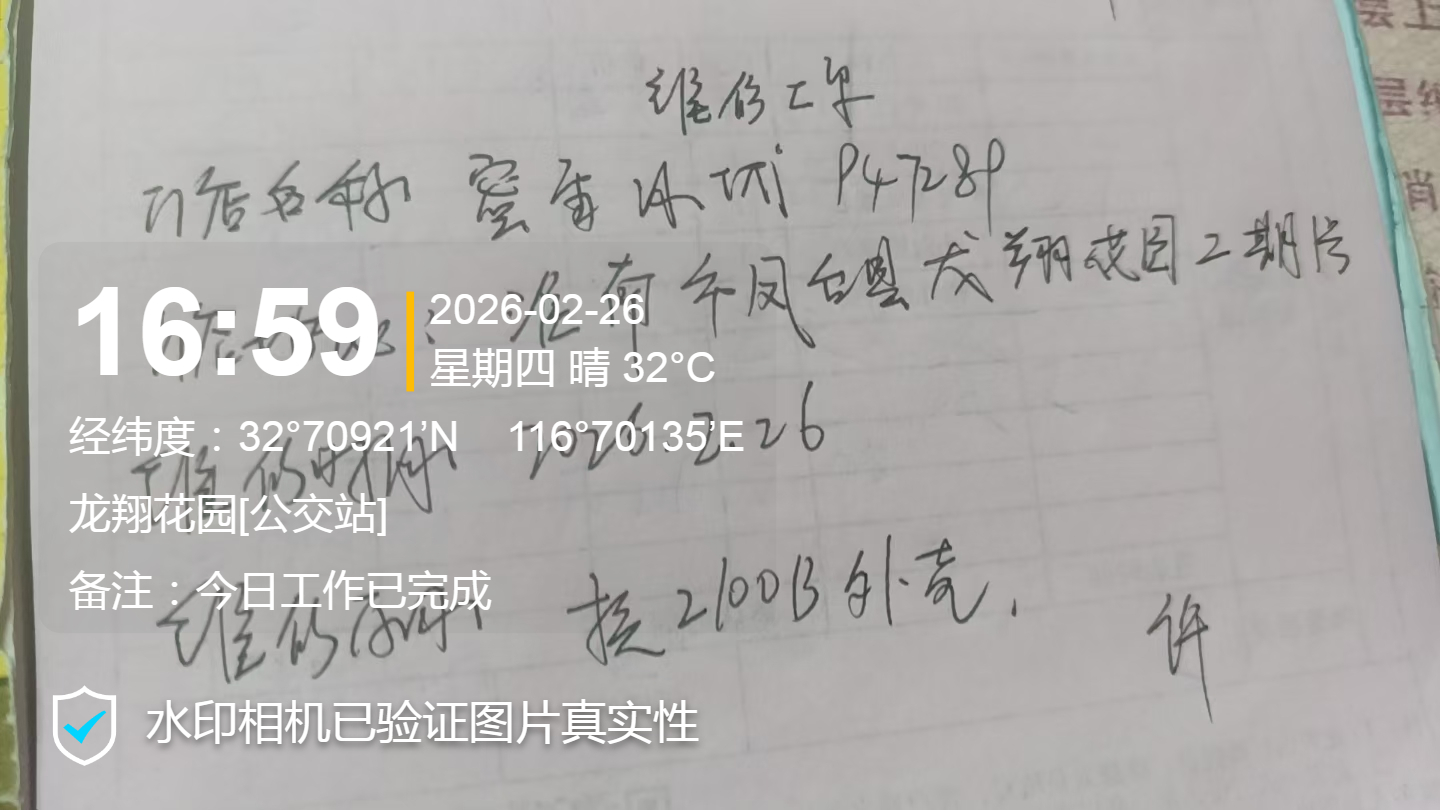 维修工单
门店名称 蜜雪冰城 P4728P
淮南市凤台县龙翔花园二期
16:59
2026-02-26
星期四 晴 32°C
经纬度：32°70921’N 116°70135’E
维修时间 2026.2.26
龙翔花园[公交站]
备注：今日工作已完成
维修 换2100B外壳.
许
水印相机已验证图片真实性